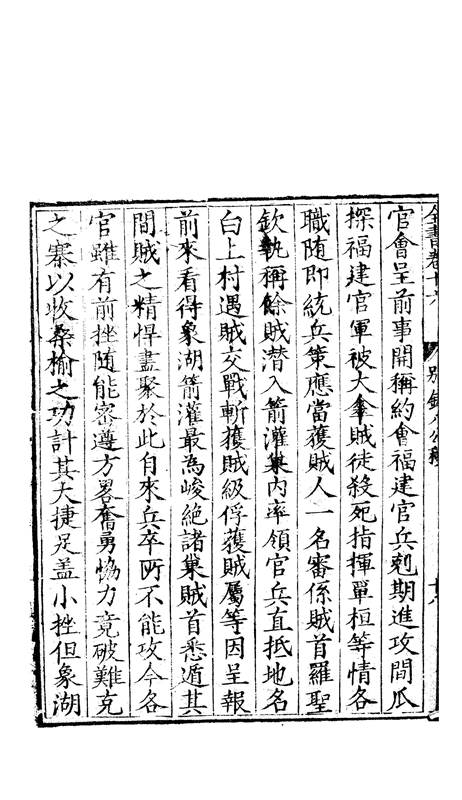 全書卷十六　別錄八公移
官會呈前事開稱約會福建官兵剋期進攻間瓜
探福建官軍被大傘賊徒殺死指揮覃桓等情各
職隨即統兵策應當獲賊人一名審係賊首羅聖
欽執稱餘賊潛入箭灌巢内率領官兵直抵地名
白上村遇賊交戰斬獲賊級俘獲賊屬等因呈報
前來看得象湖箭灌最為峻絕諸巢賊首悉遁其
間賊之精悍盡聚於此自來兵卒所不能攻今各
官雖有前挫随能密遵方畧奮勇協力竟破難克
之寨以收桑榆之功計其大捷足盖小挫但象湖